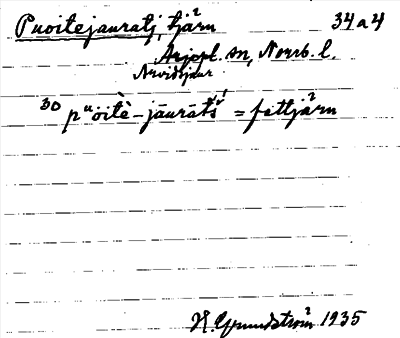 Puoitejauratj, tjärn 34a4
Arjepl. sn, Norrb. l.
Arvidsjaur
30 pᵘöitè-jāurāt́š́ = fettjärn
H. Grundström 1935